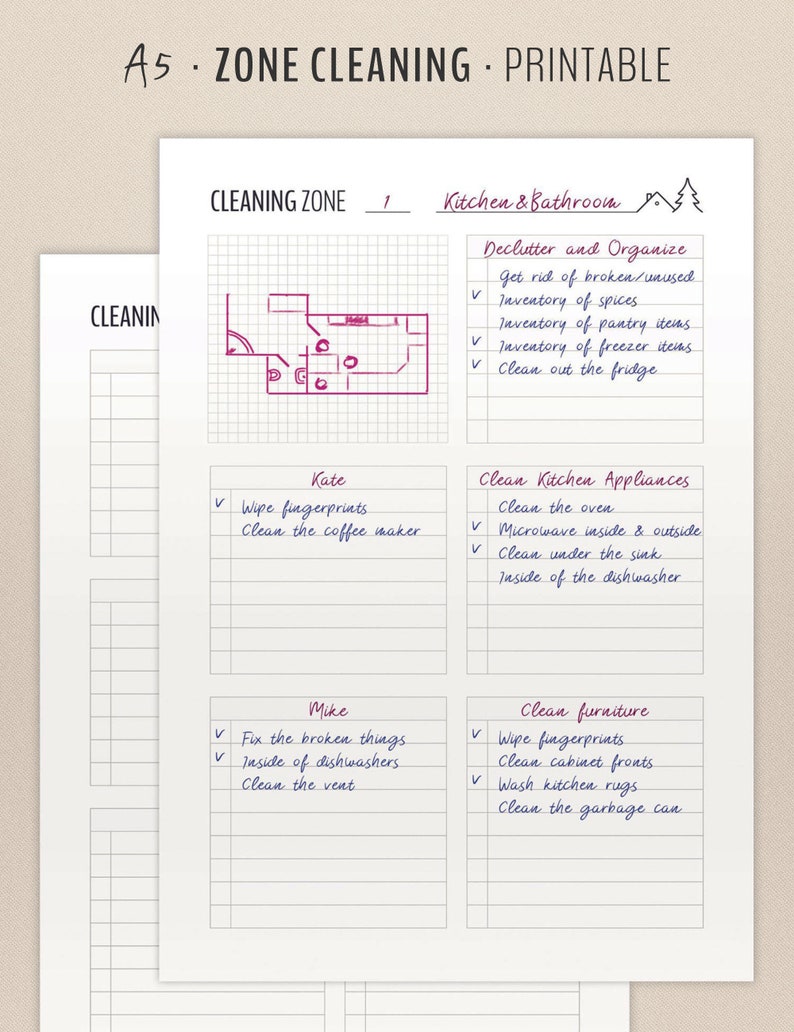 A5 · ZONE CLEANING · PRINTABLE
CLEANING ZONE 1 Kitchen & Bathroom
Declutter and Organize
Get rid of broken/unused
✓ Inventory of spices
Inventory of pantry items
✓ Inventory of freezer items
✓ Clean out the fridge
Kate
✓ Wipe fingerprints
Clean the coffee maker
Clean Kitchen Appliances
Clean the oven
✓ Microwave inside & outside
✓ Clean under the sink
Inside of the dishwasher
Mike
✓ Fix the broken things
✓ Inside of dishwashers
Clean the vent
Clean furniture
✓ Wipe fingerprints
Clean cabinet fronts
✓ Wash kitchen rugs
Clean the garbage can
CLEANIN